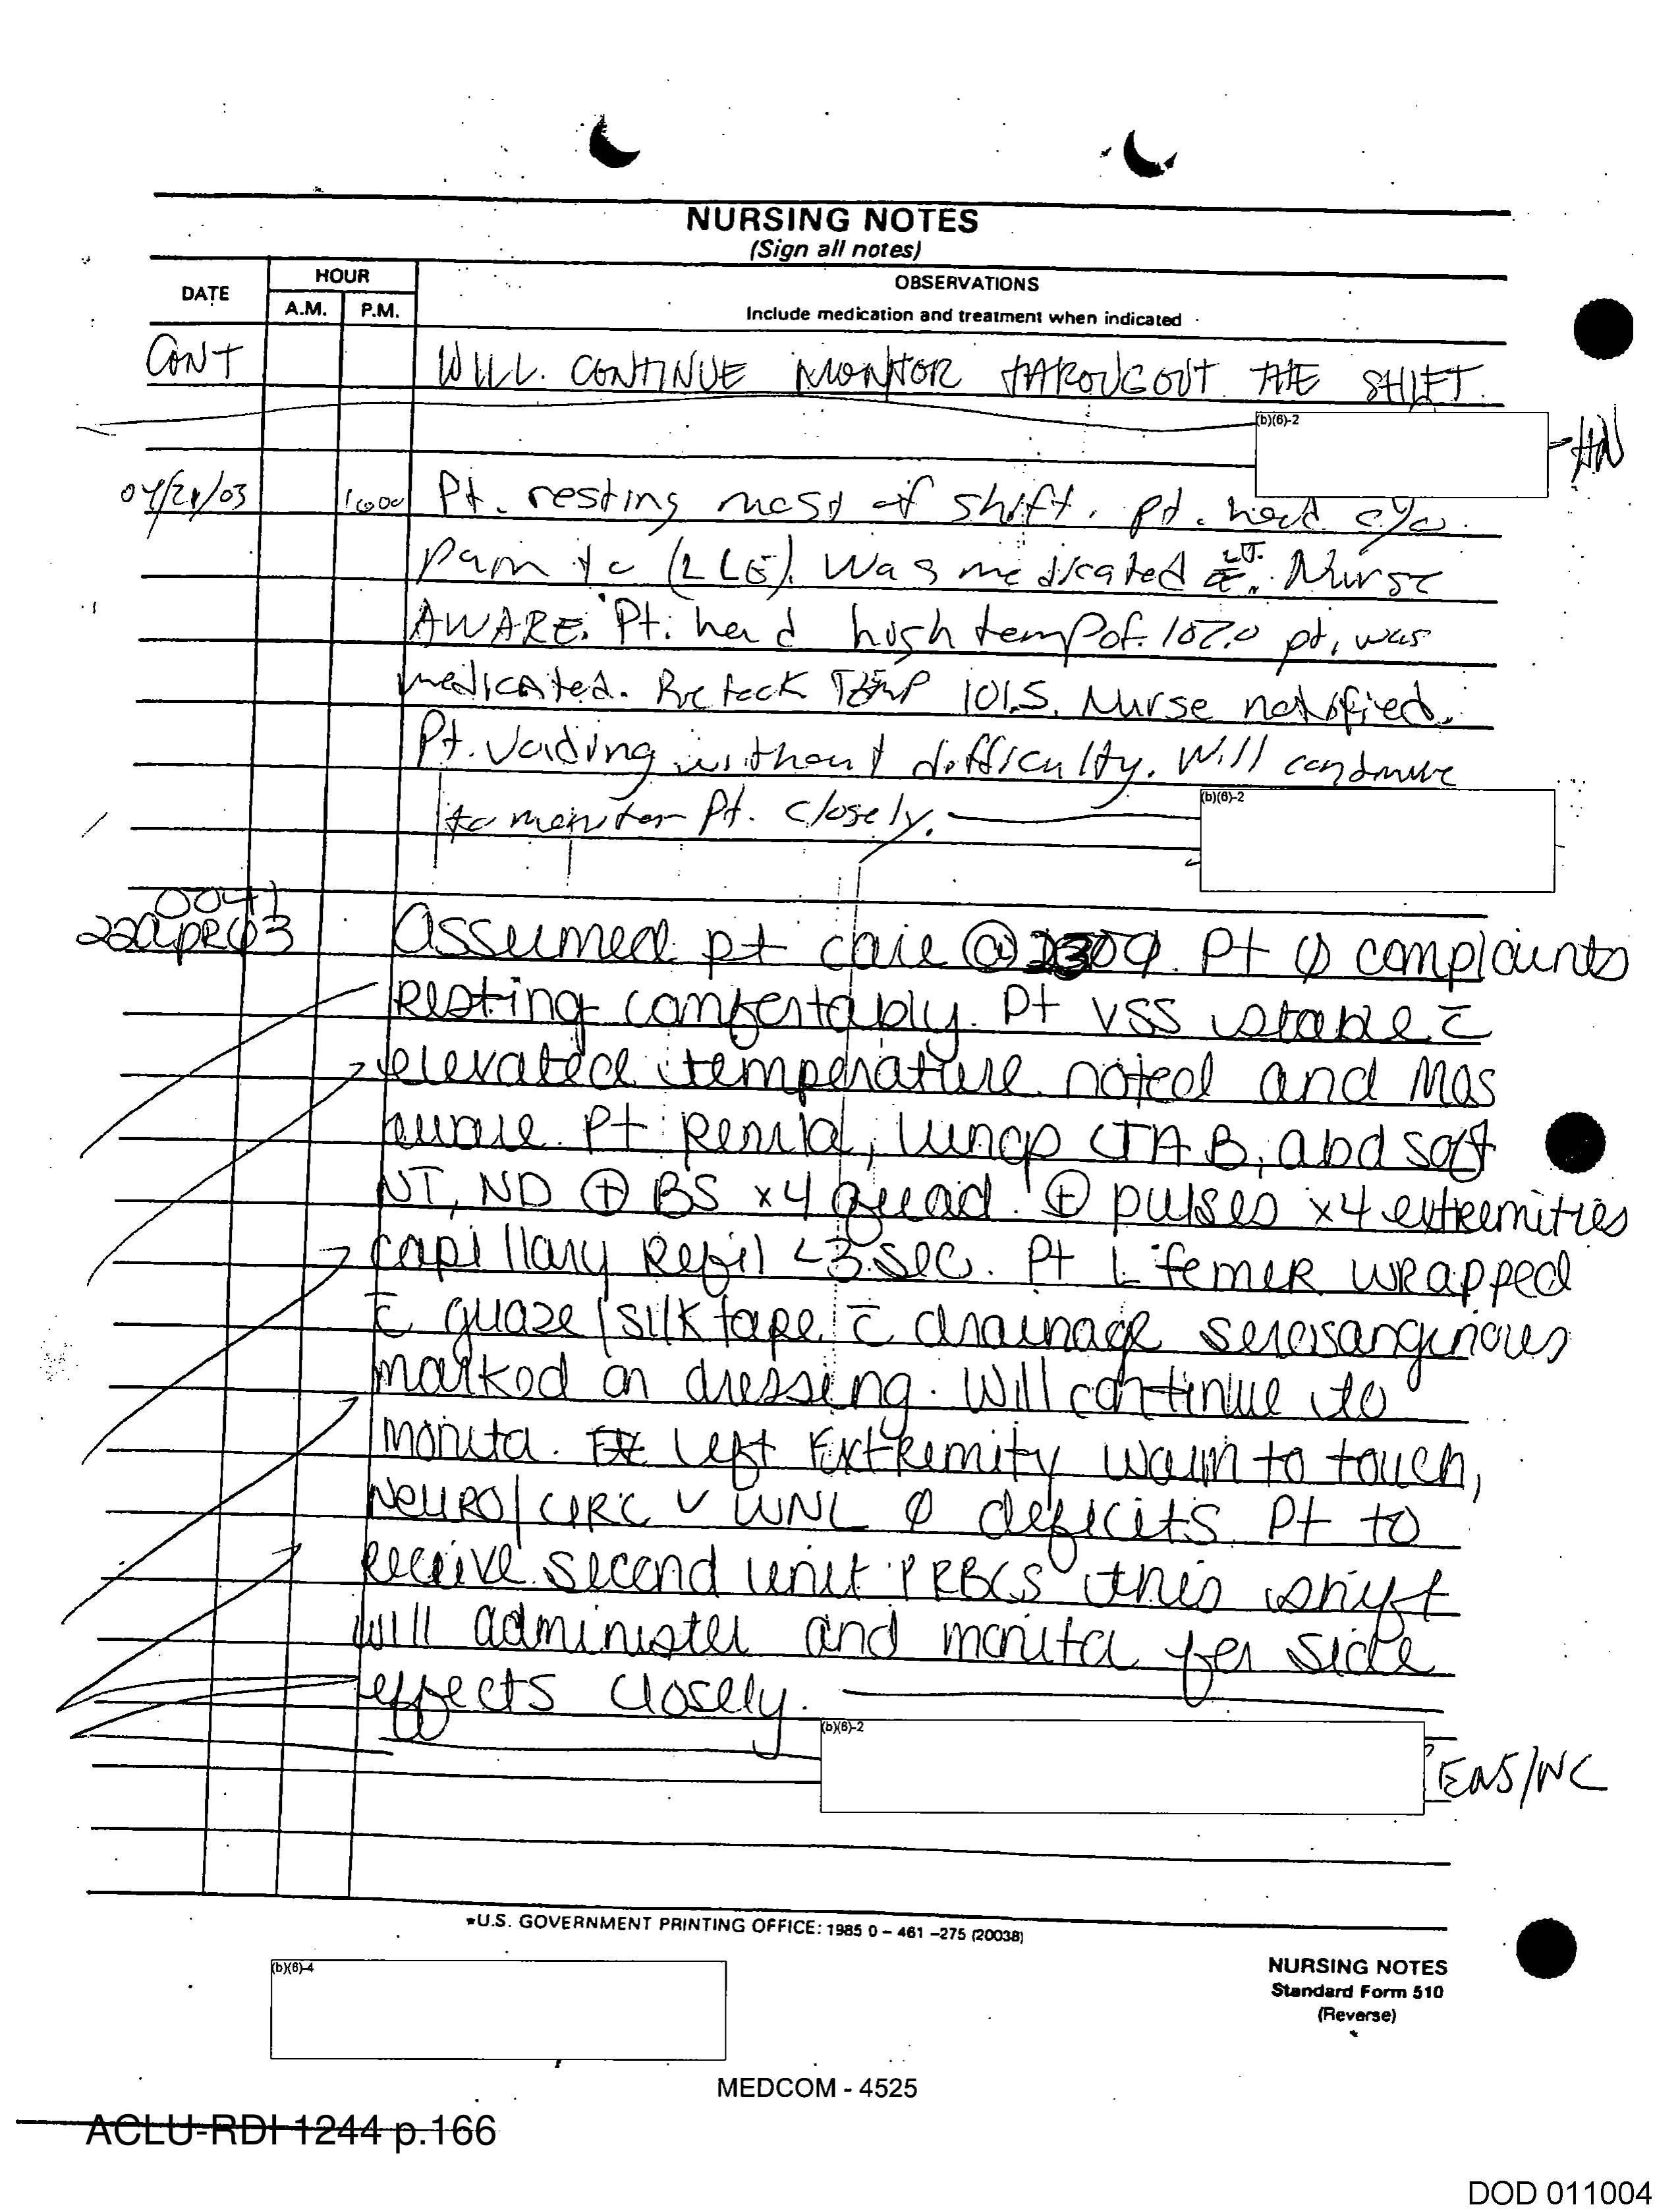 NURSING NOTES
(Sign all notes)
DATE
HOUR
A.M.
P.M.
OBSERVATIONS
Include medication and treatment when indicated
CONT WILL. CONTINUE MONITOR THROUGOUT THE SHIFT.
(b)(6)-2
HN
04/21/03 Pt. resting most of shift. pt. had c/o
pain to (LLE). Was medicated Nurse
AWARE. Pt. had high temp of 102.0 pt. was
medicated. Reteck TEMP 101.5. Nurse notified.
Pt. Voiding without difficulty. Will continue
to monitor Pt. closely.
(b)(6)-2
0041
22apr03 Assumed pt care @ Pt ∅ complaints
Resting comfortably. Pt VSS stable c̄
elevated temperature noted and
aware. Pt lungs CTA B, abd soft
NT, ND ⊕ BS x4 quad. ⊕ pulses x4 extremities
capillary Refil <3 sec. Pt L femur wrapped
c̄ guaze/silk tape c̄ drainage
marked on dressing. Will continue to
monitor. left Extremity warm to touch,
NEURO/CIRC ✓ WNL ∅ deficits Pt to
receive second unit PRBCS this shift
will administer and monitor for side
effects closely.
(b)(6)-2
ENS/NC
*U.S. GOVERNMENT PRINTING OFFICE: 1985 0 – 461 –275 (20038)
(b)(6)-4
NURSING NOTES
Standard Form 510
(Reverse)
MEDCOM - 4525
ACLU-RDI 1244 p.166
DOD 011004